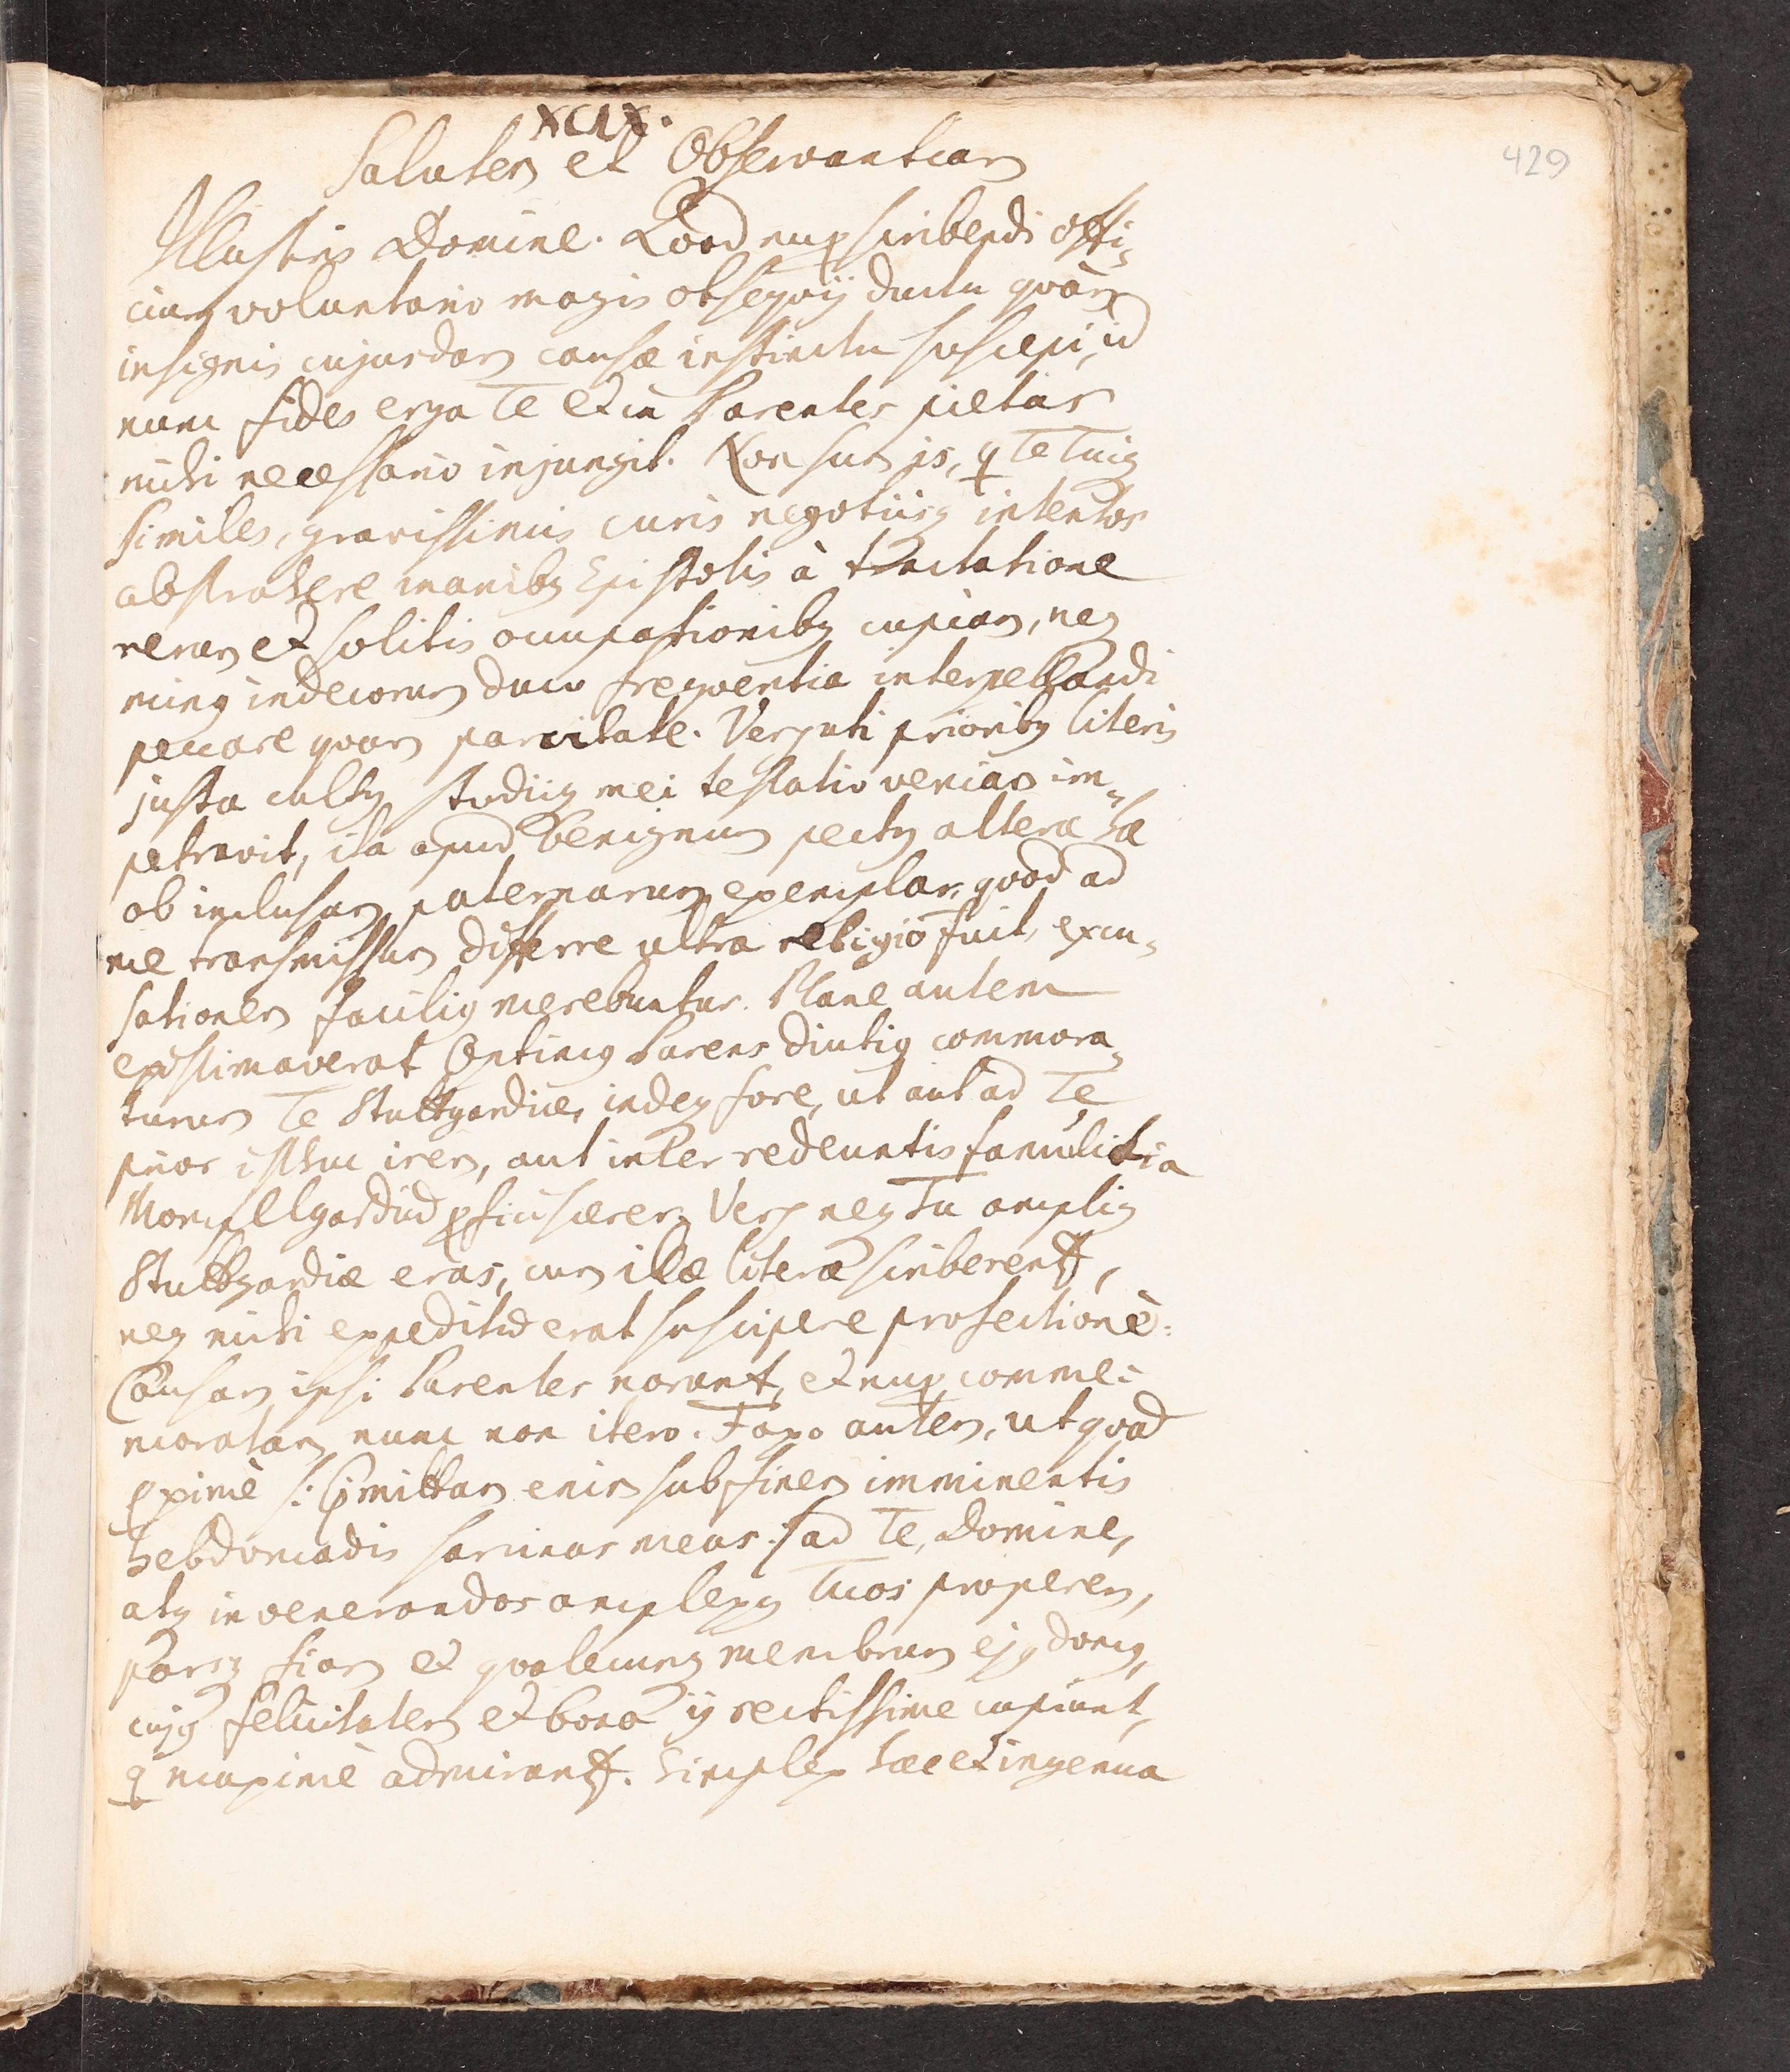 XCIX.
429
Salutem et Observantiam
Illustris Domine. Quod nup scribendi offi-
cium voluntario magis obsequij ductu quàm
insignis cujusdam causæ instinctu suscepi, id
nunc fides erga Te et in Parentes pietas
mihi necessario injungit. Non sum is, q Te Tuiq
similes, gravissimis curis negotiisq intentos
abstrahere inanibq Epistolis à tractatione
rerum et solitis occupationibq cupiam, neq
minq indecorum duco frequentia interpellandi
peccare quam parcitate. Verum uti prioribq literis
justa cultq studiiq mei testatio veniam im-
petravit, ita apud benignum pectq alteræ hæ
ob inclusum paternarum exemplar, quod ad
me transmissum differre ultra religio fuit, excu-
sationem faciliq merebuntur. Plane autem
existimaverat Optimq Parens diutiq commora-
turum Te Stuttgardiæ, indeq fore, ut aut ad Te
prior isthuc irem, aut inter redeuntis famulitia
Mompelgardũ pficiscerer. Verum neq Tu ampliq
Stuttgardiæ eras, cum illæ literæ scriberent,
neq mihi expeditũ erat suscipere profectionẽ.
Causam ipsi Parentes norant, et nup comme-
moratam nunc non itero. Faxo autem, ut quod
pximè /: pmittam enim sub finem imminentis
hebdomadis sarcinas meas :/ ad Te, Domine,
atq in venerandos amplexq Tuos properem,
Parsq fiam et qualecunq membrum ejq domq,
cujq felicitatem et bona ij rectissime cupiunt,
q maximè admirant. Simplex hæc et ingenua